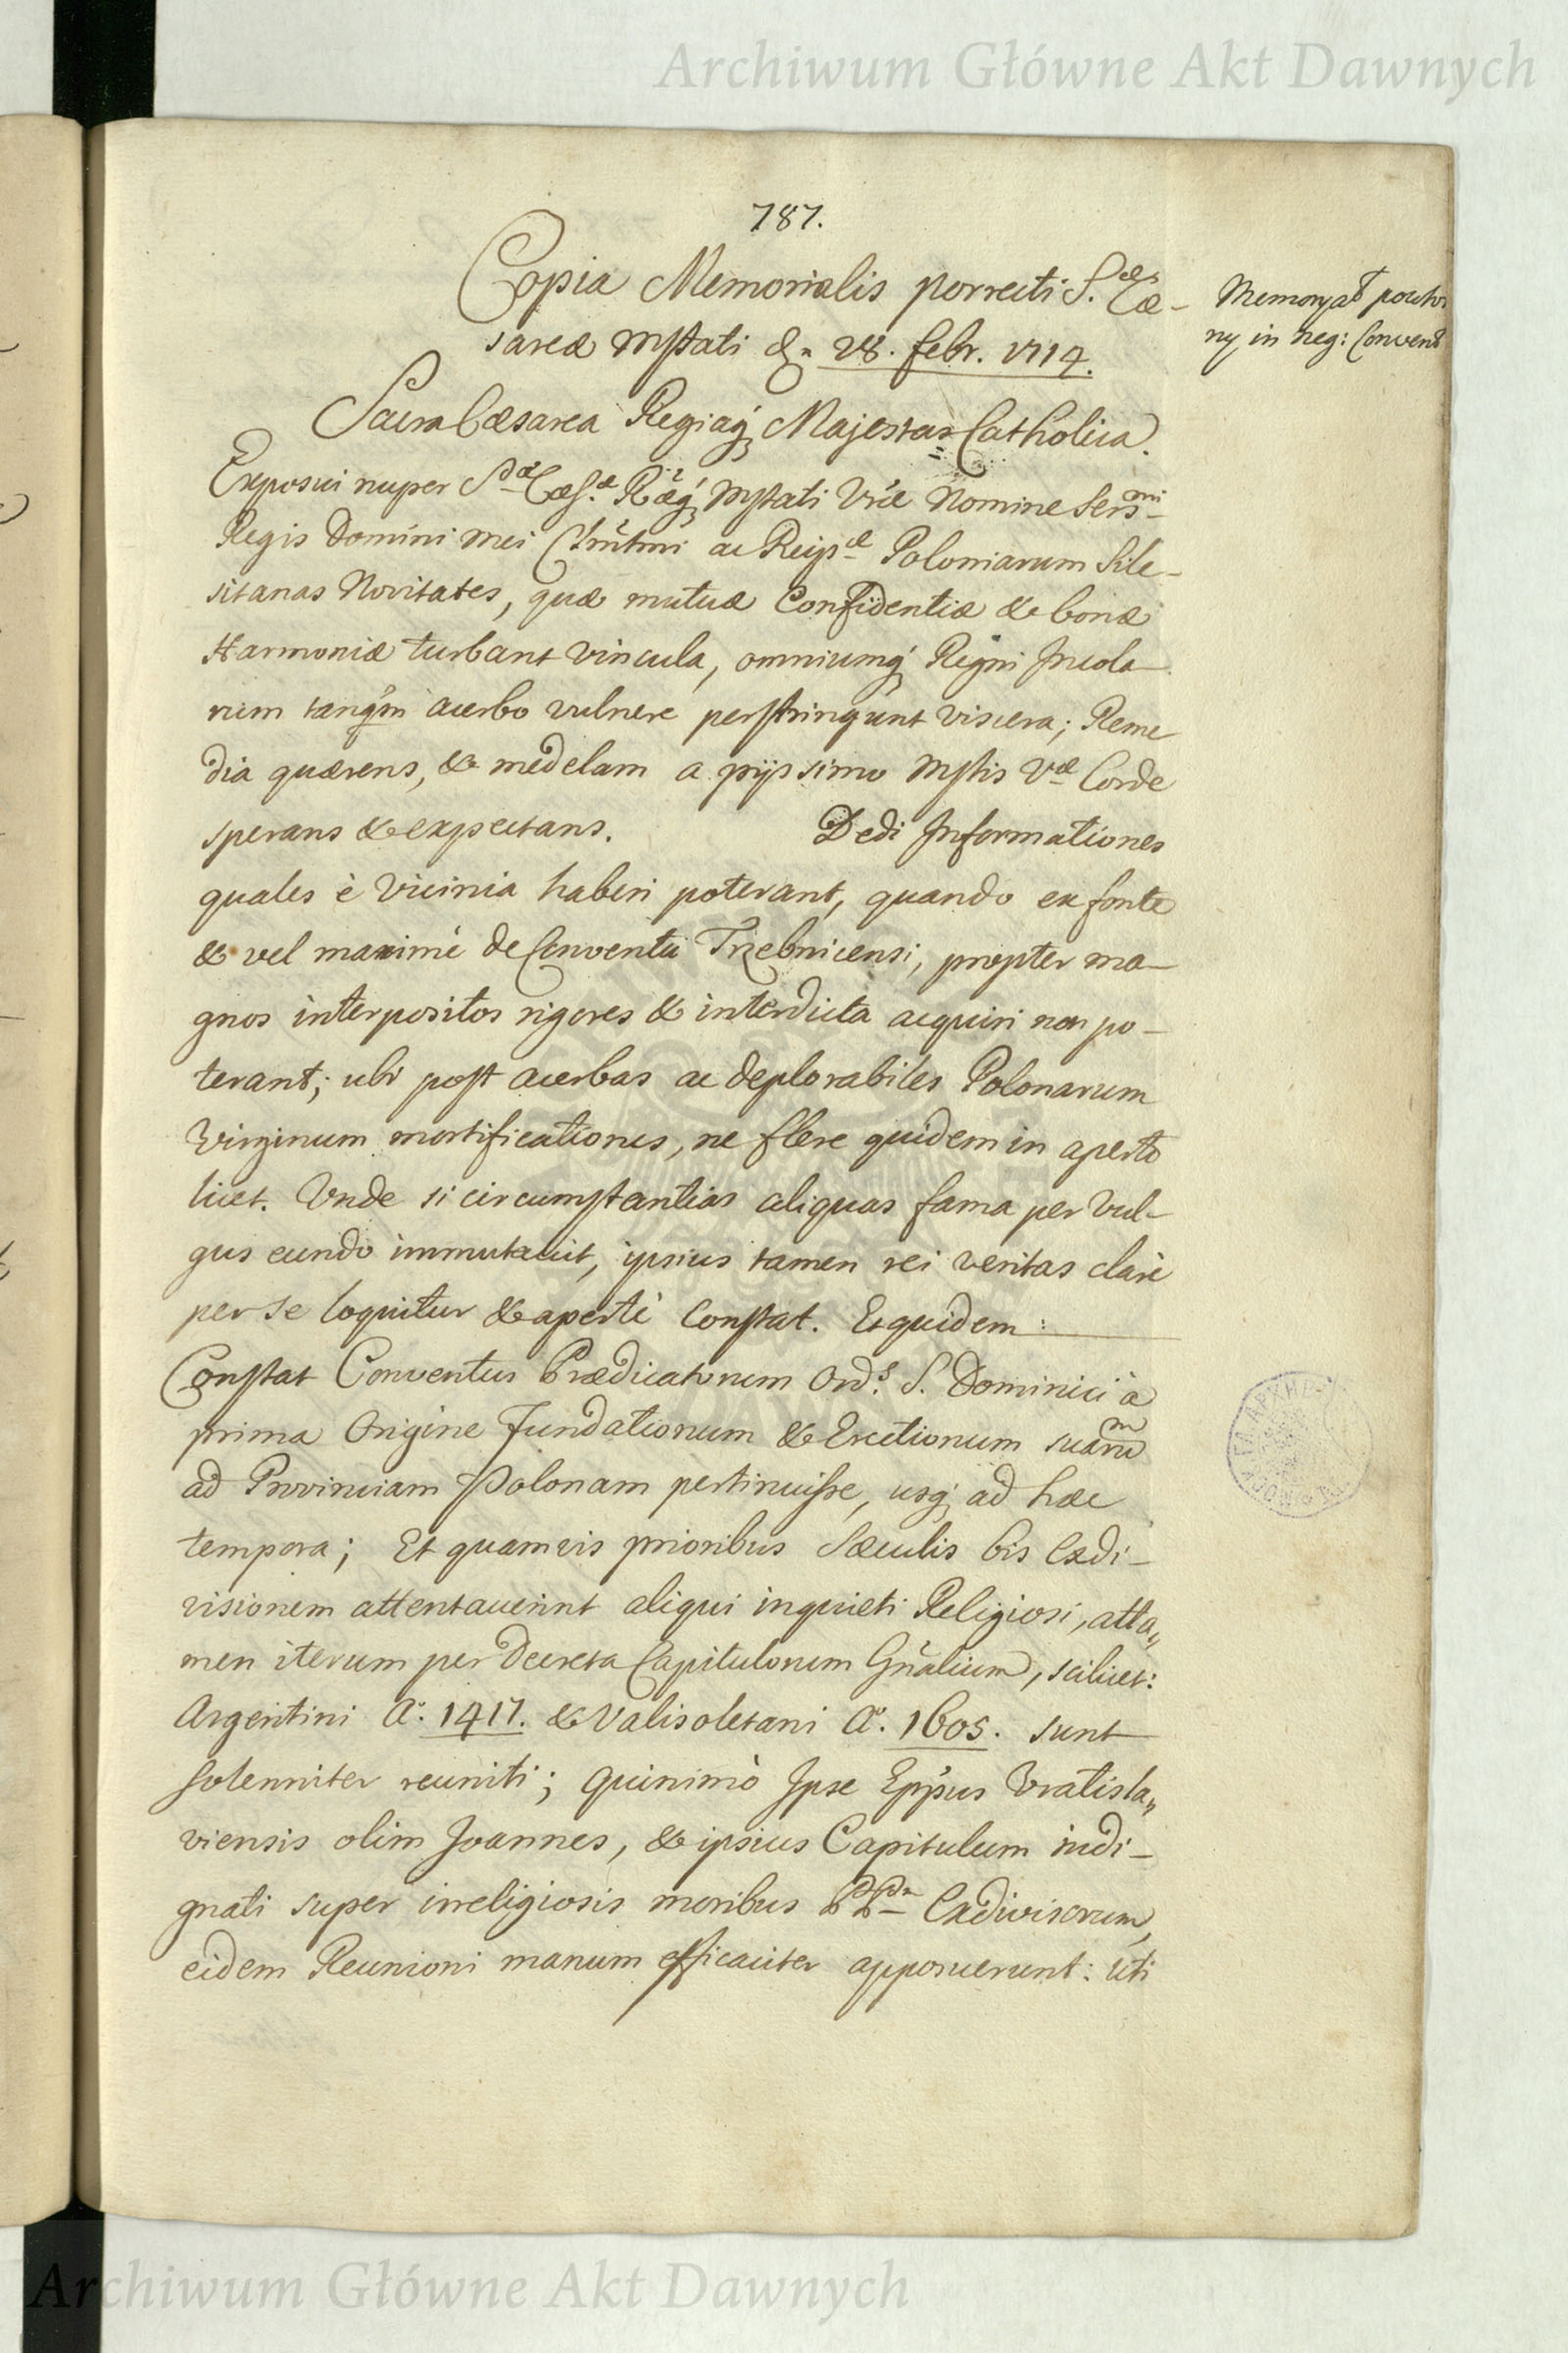 Archiwum Główne Akt Dawnych
787.
Copia Memorialis porrecti S. Cæ-
sareæ Mstati d. 28. febr. 1714.
Memoryał
ny in neg: Convent
Sacra Cæsarea Regiaq; Majestas Catholica.
Exposui nuper Sæ Cæs.æ Ræq; Mstati Vræ Nomine Sermi
Regis Domini mei Clmtmi ac Reipæ Poloniarum Sile-
sitanas Novitates, quæ mutuæ Confidentiæ & bonæ
Harmoniæ turbant vincula, omniumq; Regni Incola
rum tanqm acerbo vulnere perstringunt viscera; Reme
dia quærens, & medelam a pijssimo Mstis Væ Corde
sperans & expectans. Dedi Informationes
quales è Vicinia haberi poterant, quando ex fonte
& vel maximè de Conventu Trzebnicensi, propter ma-
gnos interpositos rigores & interdicta acquiri non po-
terant; ubi post acerbas ac deplorabiles Polonarum
Virginum mortificationes, ne flere quidem in aperto
licet. Vnde si circumstantias aliquas fama per Vul-
gus eundo immutavit, ipsius tamen rei veritas clarè
per se loquitur & apertè Constat. Et quidem:
Constat Conventus Prædicatorum Ord.s S. Dominici à
prima Origine Fundationum & Erectionum suarum
ad Provinciam Polonam pertinuisse, usq; ad hæc
tempora; Et quamvis prioribus Sæculis bis Exdi-
visionem attentaverint aliqui inquieti Religiosi, atta„
men iterum per Decreta Capitulorum Gnalium, scilicet:
Argentini Aº. 1417. & Valisoletani Aº. 1605. sunt
solenniter reuniti; Quinimò Ipse Eppus Vratisla„
viensis olim Joannes, & ipsius Capitulum indi-
gnati super irreligiosis moribus PP Exdivisorum,
eidem Reunioni manum efficaciter apposuerunt: uti
Archiwum Główne Akt Dawnych